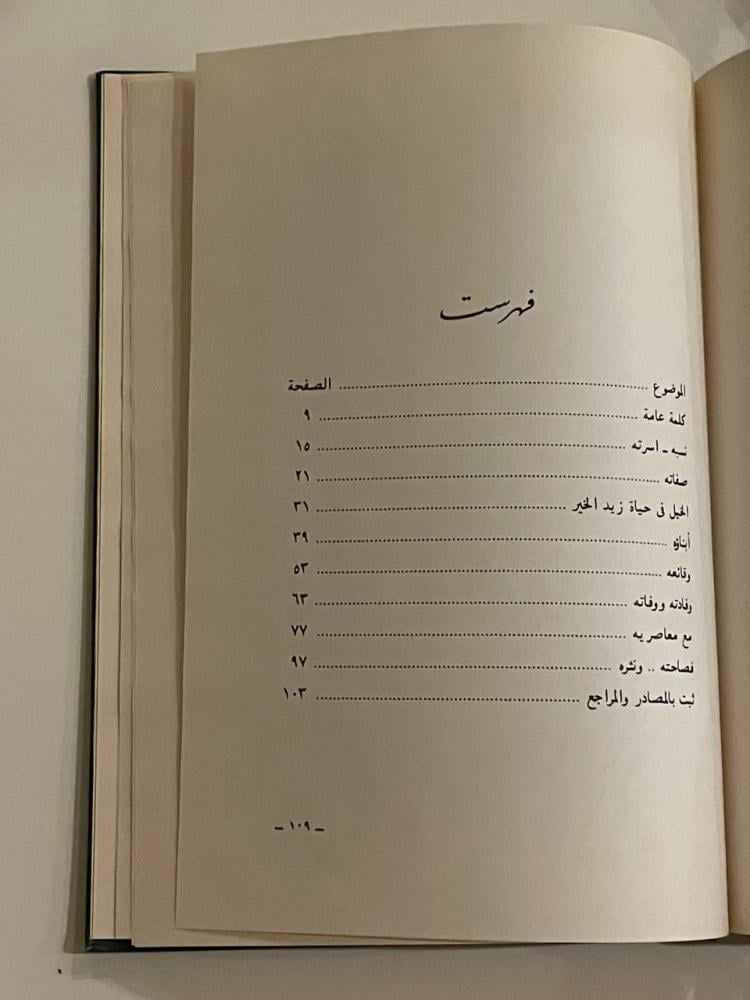 فهرست
الموضوع ........ الصفحة
كلمة عامة ........ ٩
نسبه ـ اسرته ........ ١٥
صفاته ........ ٢١
الخيل فى حياة زيد الخير ........ ٣١
أبناؤه ........ ٣٩
وقائعه ........ ٥٣
وفادته ووفاته ........ ٦٣
مع معاصريه ........ ٧٧
فصاحته .. ونثره ........ ٩٧
ثبت بالمصادر والمراجع ........ ١٠٣
ـ ١٠٩ ـ